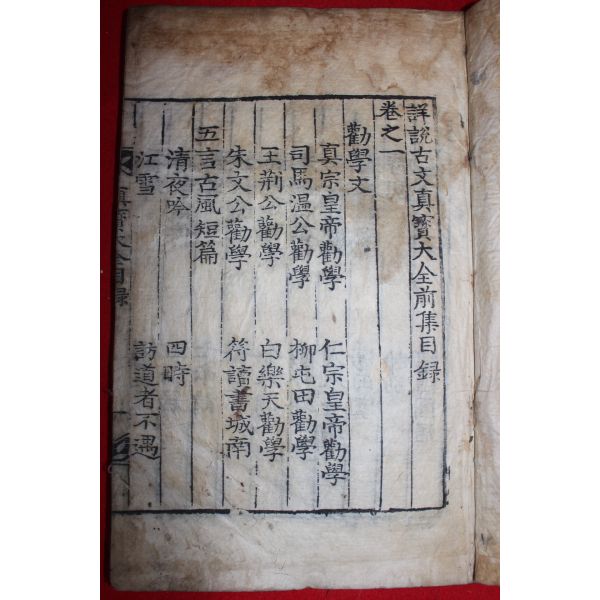 詳說古文真寶大全前集目錄
卷之一
勸學文
真宗皇帝勸學 仁宗皇帝勸學
司馬溫公勸學 柳屯田勸學
王荊公勸學 白樂天勸學
朱文公勸學 符讀書城南
五言古風短篇
清夜吟 四時
江雪 訪道者不遇
真寶大全目錄